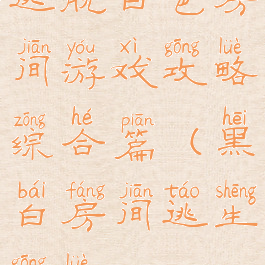 逃脱白色房
jiān yóu xì gōng lüè
间游戏攻略
zōng hé piān hēi
综合篇（黑
bái fáng jiān táo shēng
白房间逃生
gōng lüè